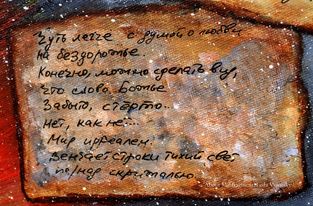 Чуть легче с думой о любви
На бездорожье.
Конечно, можно сделать вид,
Что слово Божье
Забыто, стёрто...
Нет, как не...
Мир ирреален.
Венчает строки тихий свет